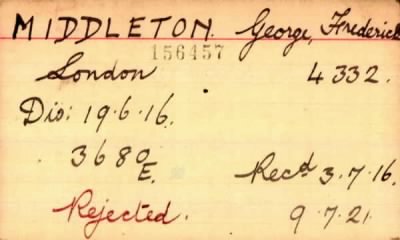 MIDDLETON. George, Frederick
156457
London 4332.
Dis: 19.6.16.
3680 E. Recd 3.7.16.
Rejected. 9.7.21.